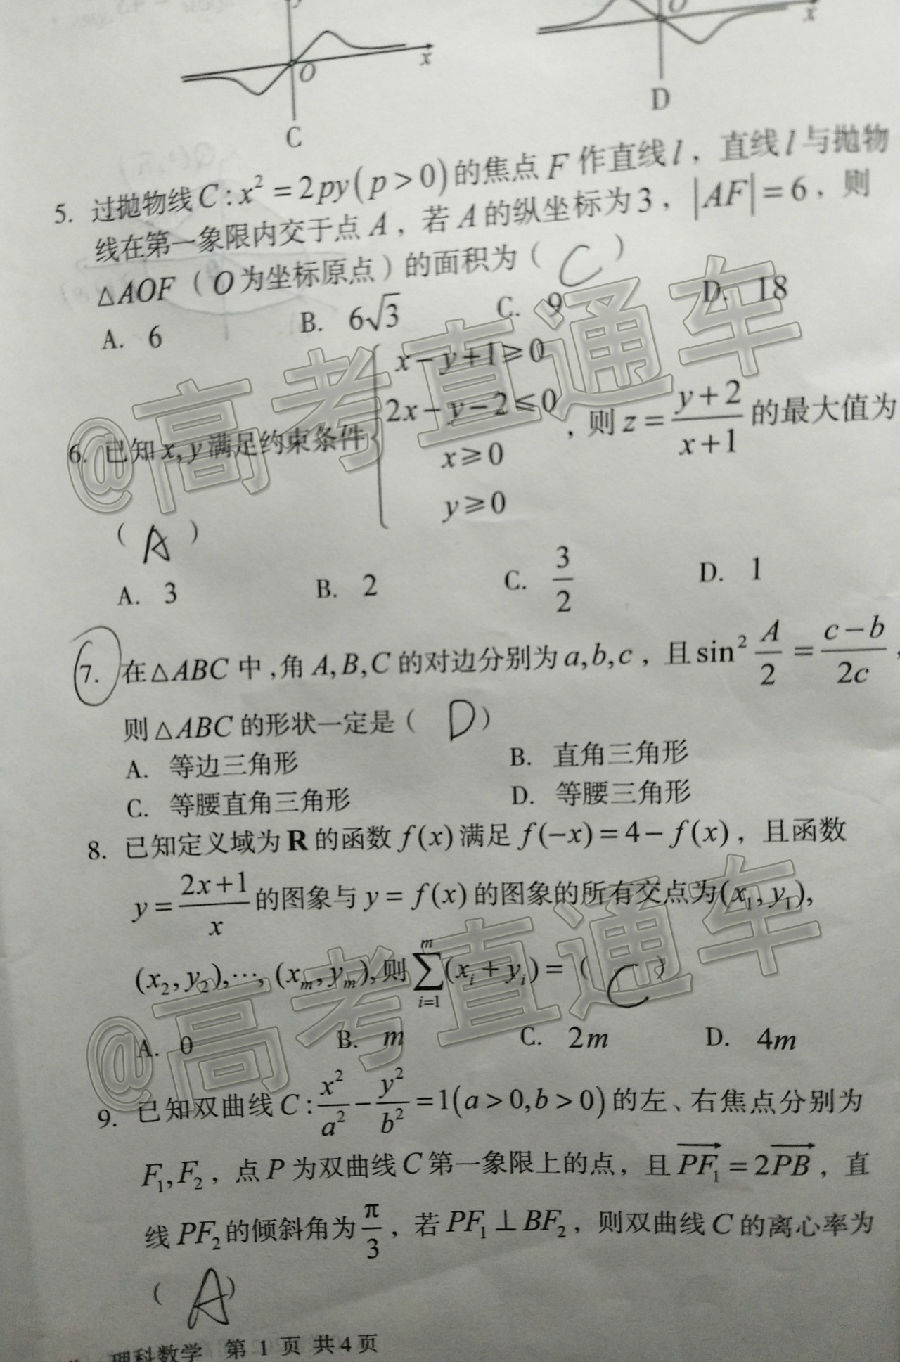 y
O
x
C
O
x
D
5. 过抛物线C:x²=2py(p>0)的焦点 F 作直线l，直线l与抛物
线在第一象限内交于点 A，若 A的纵坐标为3，|AF|=6，则
△AOF（O为坐标原点）的面积为（ C ）
A. 6 B. 6√3 C. 9 D. 18
@高考直通车
x-y+1≥0
2x-y-2≤0
x≥0
y≥0
6. 已知x,y满足约束条件，则z=(y+2)/(x+1)的最大值为
（ A ）
A. 3 B. 2 C. 3/2 D. 1
7. 在△ABC中,角A,B,C的对边分别为a,b,c，且sin² A/2=(c-b)/2c，
则△ABC的形状一定是（ D ）
A. 等边三角形 B. 直角三角形
C. 等腰直角三角形 D. 等腰三角形
8. 已知定义域为R的函数f(x)满足f(-x)=4-f(x)，且函数
y=(2x+1)/x的图象与y=f(x)的图象的所有交点为(x₁,y₁),
(x₂,y₂),⋯,(xₘ,yₘ),则∑_{i=1}^{m}(xᵢ+yᵢ)=（ C ）
@高考直通车
A. 0 B. m C. 2m D. 4m
9. 已知双曲线C:x²/a²-y²/b²=1(a>0,b>0)的左、右焦点分别为
F₁,F₂，点P为双曲线C第一象限上的点，且PF₁=2PB，直
线PF₂的倾斜角为π/3，若PF₁⊥BF₂，则双曲线C的离心率为
（ A ）
理科数学 第 1 页 共4页